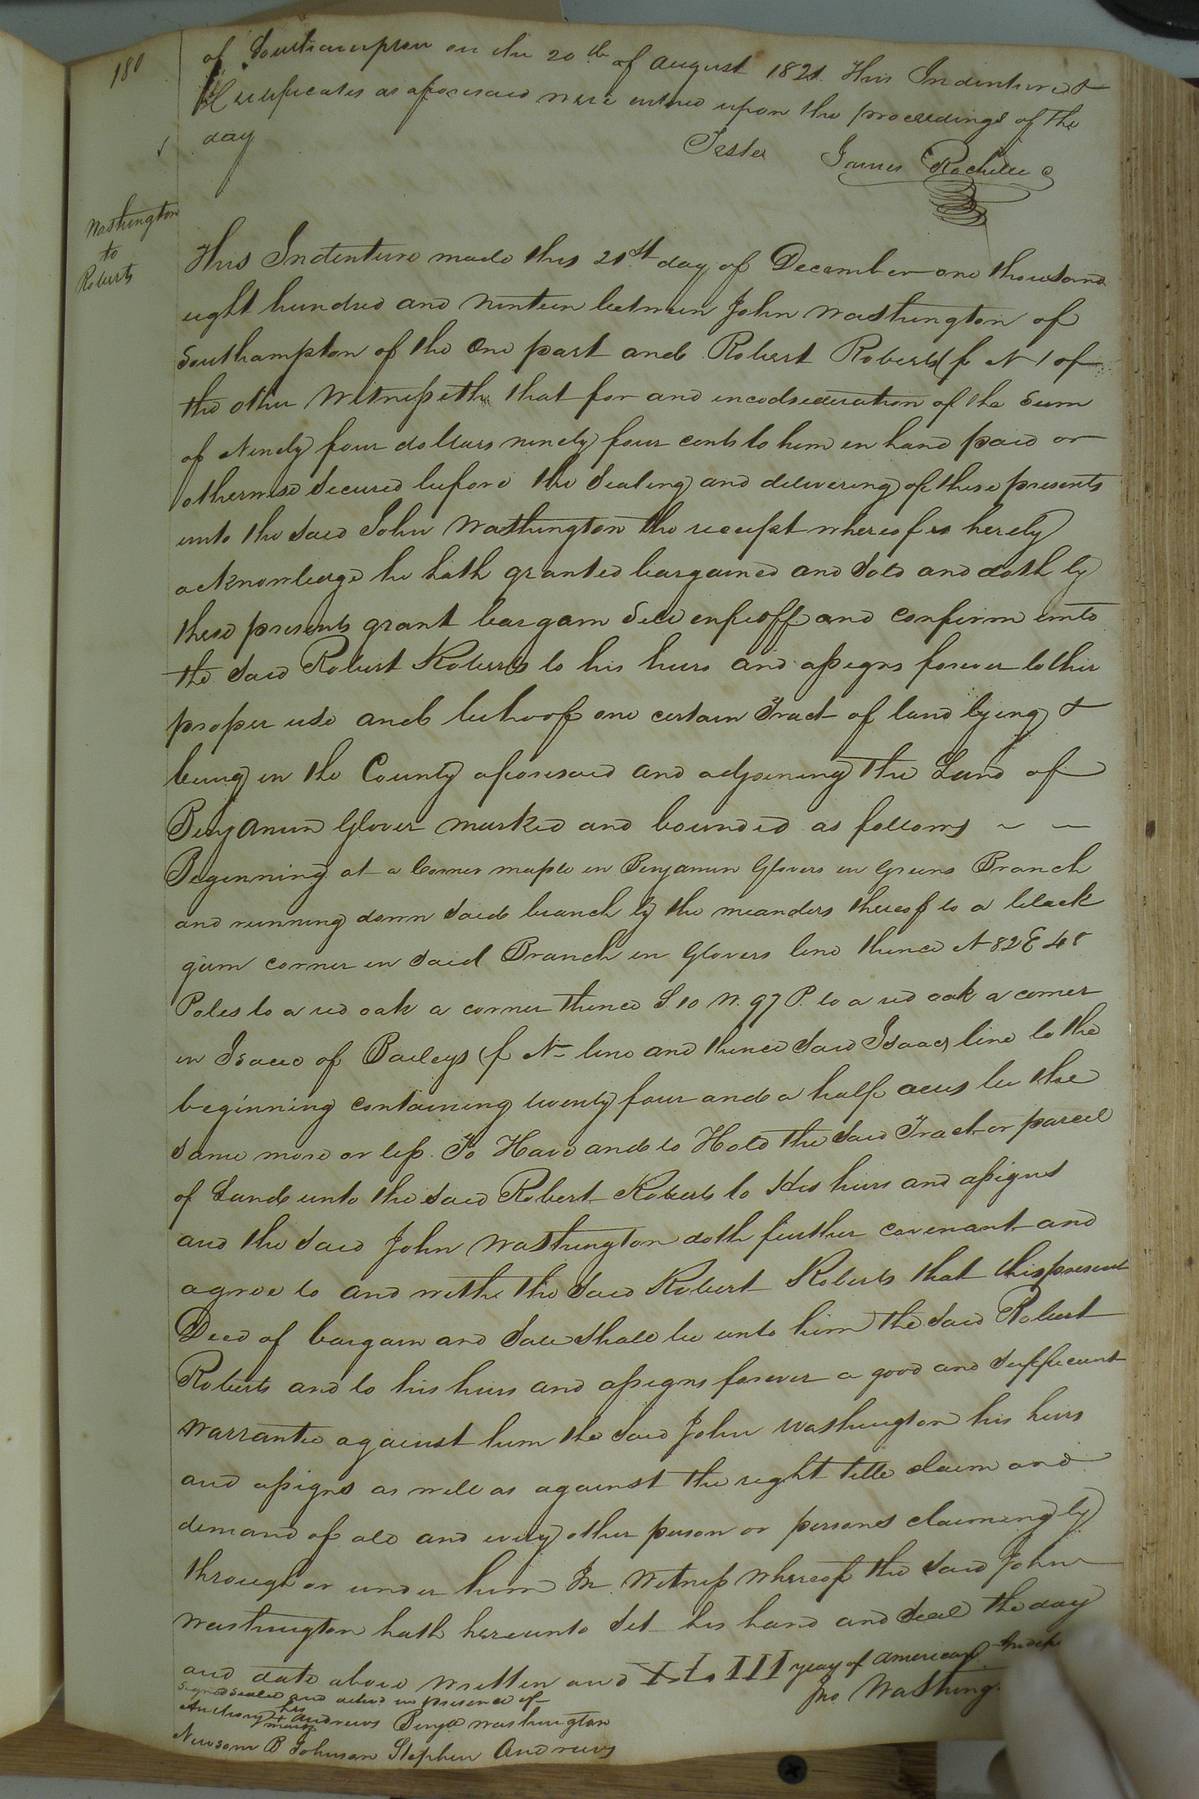 180
of Southampton on the 20th of August 1821. This Indenture &
Certificates as aforesaid were entered upon the proceedings of the
day
Teste James Rochelle
Washington
to
Roberts
This Indenture made this 21st day of December one thousand
eight hundred and ninteen between John Washington of
Southampton of the one part and Robert Roberts (f N) of
the other Witnesseth that for and in considseration of the Sum
of Ninety four dollars ninety four cents to him in hand paid or
otherwise Secured before the Sealing and delivering of these presents
unto the Said John Washington the receipt whereof is hereby
acknowledge he hath granted bargained and Sold and doth by
these presents grant bargain Sell enfeoff and confirm unto
the Said Robert Roberts to his heirs and assigns forever to their
proper use and behoof one certain Tract of land lying &
being in the County aforesaid and adjoining the Land of
Benjamin Glover marked and bounded as follows ~ ~
Beginning at a Corner maple in Benjamin Glovers in Greens Branch
and running down Said branch by the meanders thereof to a black
gum corner in Said Branch in Glovers line thence N 82 E 48
Poles to a red oak a corner thence S. 10 W. 97 P. to a red oak a corner
in Isaac of Baileys (f N line and thence Said Isaacs line to the
beginning containing twenty four and a half acres be the
Same more or less. To Have and to Hold the Said Tract or parcel
of Land unto the Said Robert Roberts to His heirs and assigns
and the Said John Washington doth further covenant and
agree to and with the Said Robert Roberts that this present
Deed of bargain and Sale Shall be unto him the Said Robert
Roberts and to his heirs and assigns forever a good and Sufficient
Warrantie against him the Said John Washington his heirs
and assigns as well as against the right title claim and
demand of all and every other person or persons claiming by
through or under him In Witness Whereof the Said John
Washington hath hereunto Set his hand and Seal the day
and date above written and XLIII year of American
Signed Sealed and deliv'd in presence of Jno Washing
his
Anthony + Andrews Benja Washington
mark
Newsom B Johnson Stephen Andrews